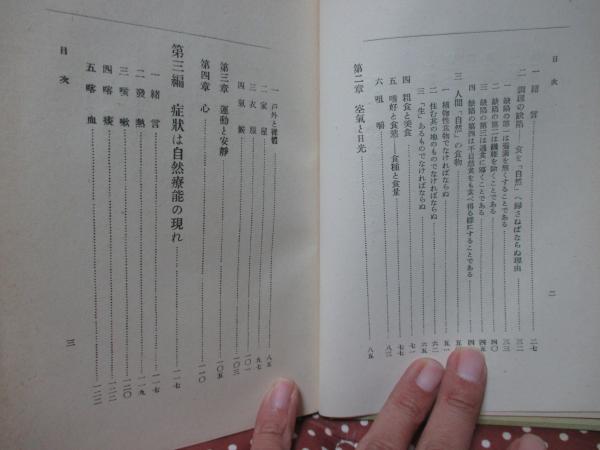 目次
一 緒言……二七
二 調理の缺陷――食を「自然」へ歸さねばならぬ理由……三二
一 缺陷の第一は營養を無くすることである……三三
二 缺陷の第二は纖維を除くことである……四〇
三 缺陷の第三は過食に導くことである……四五
四 缺陷の第四は不自然食をも食べ得る樣にすることである……四
三 人間「自然」の食物……五
一 植物性食物でなければならぬ……五一
二 住む土地のものでなければならぬ……六二
三 「生」あるものでなければならぬ……六五
四 粗食と美食……七一
五 嗜好と食慾――食種と食量……七七
六 咀嚼……八二
第二章 空氣と日光……八五
二
一 戸外と裸體……八五
二 家屋……九七
三 衣服……一〇一
四 氣候……一〇三
第三章 運動と安靜……一〇五
第四章 心……一一〇
第三編 症狀は自然療能の現れ……一一七
一 緒言……一一七
二 發熱……一一九
三 咳嗽……一二〇
四 喀痰……一二二
五 喀血……一二三
目次
三